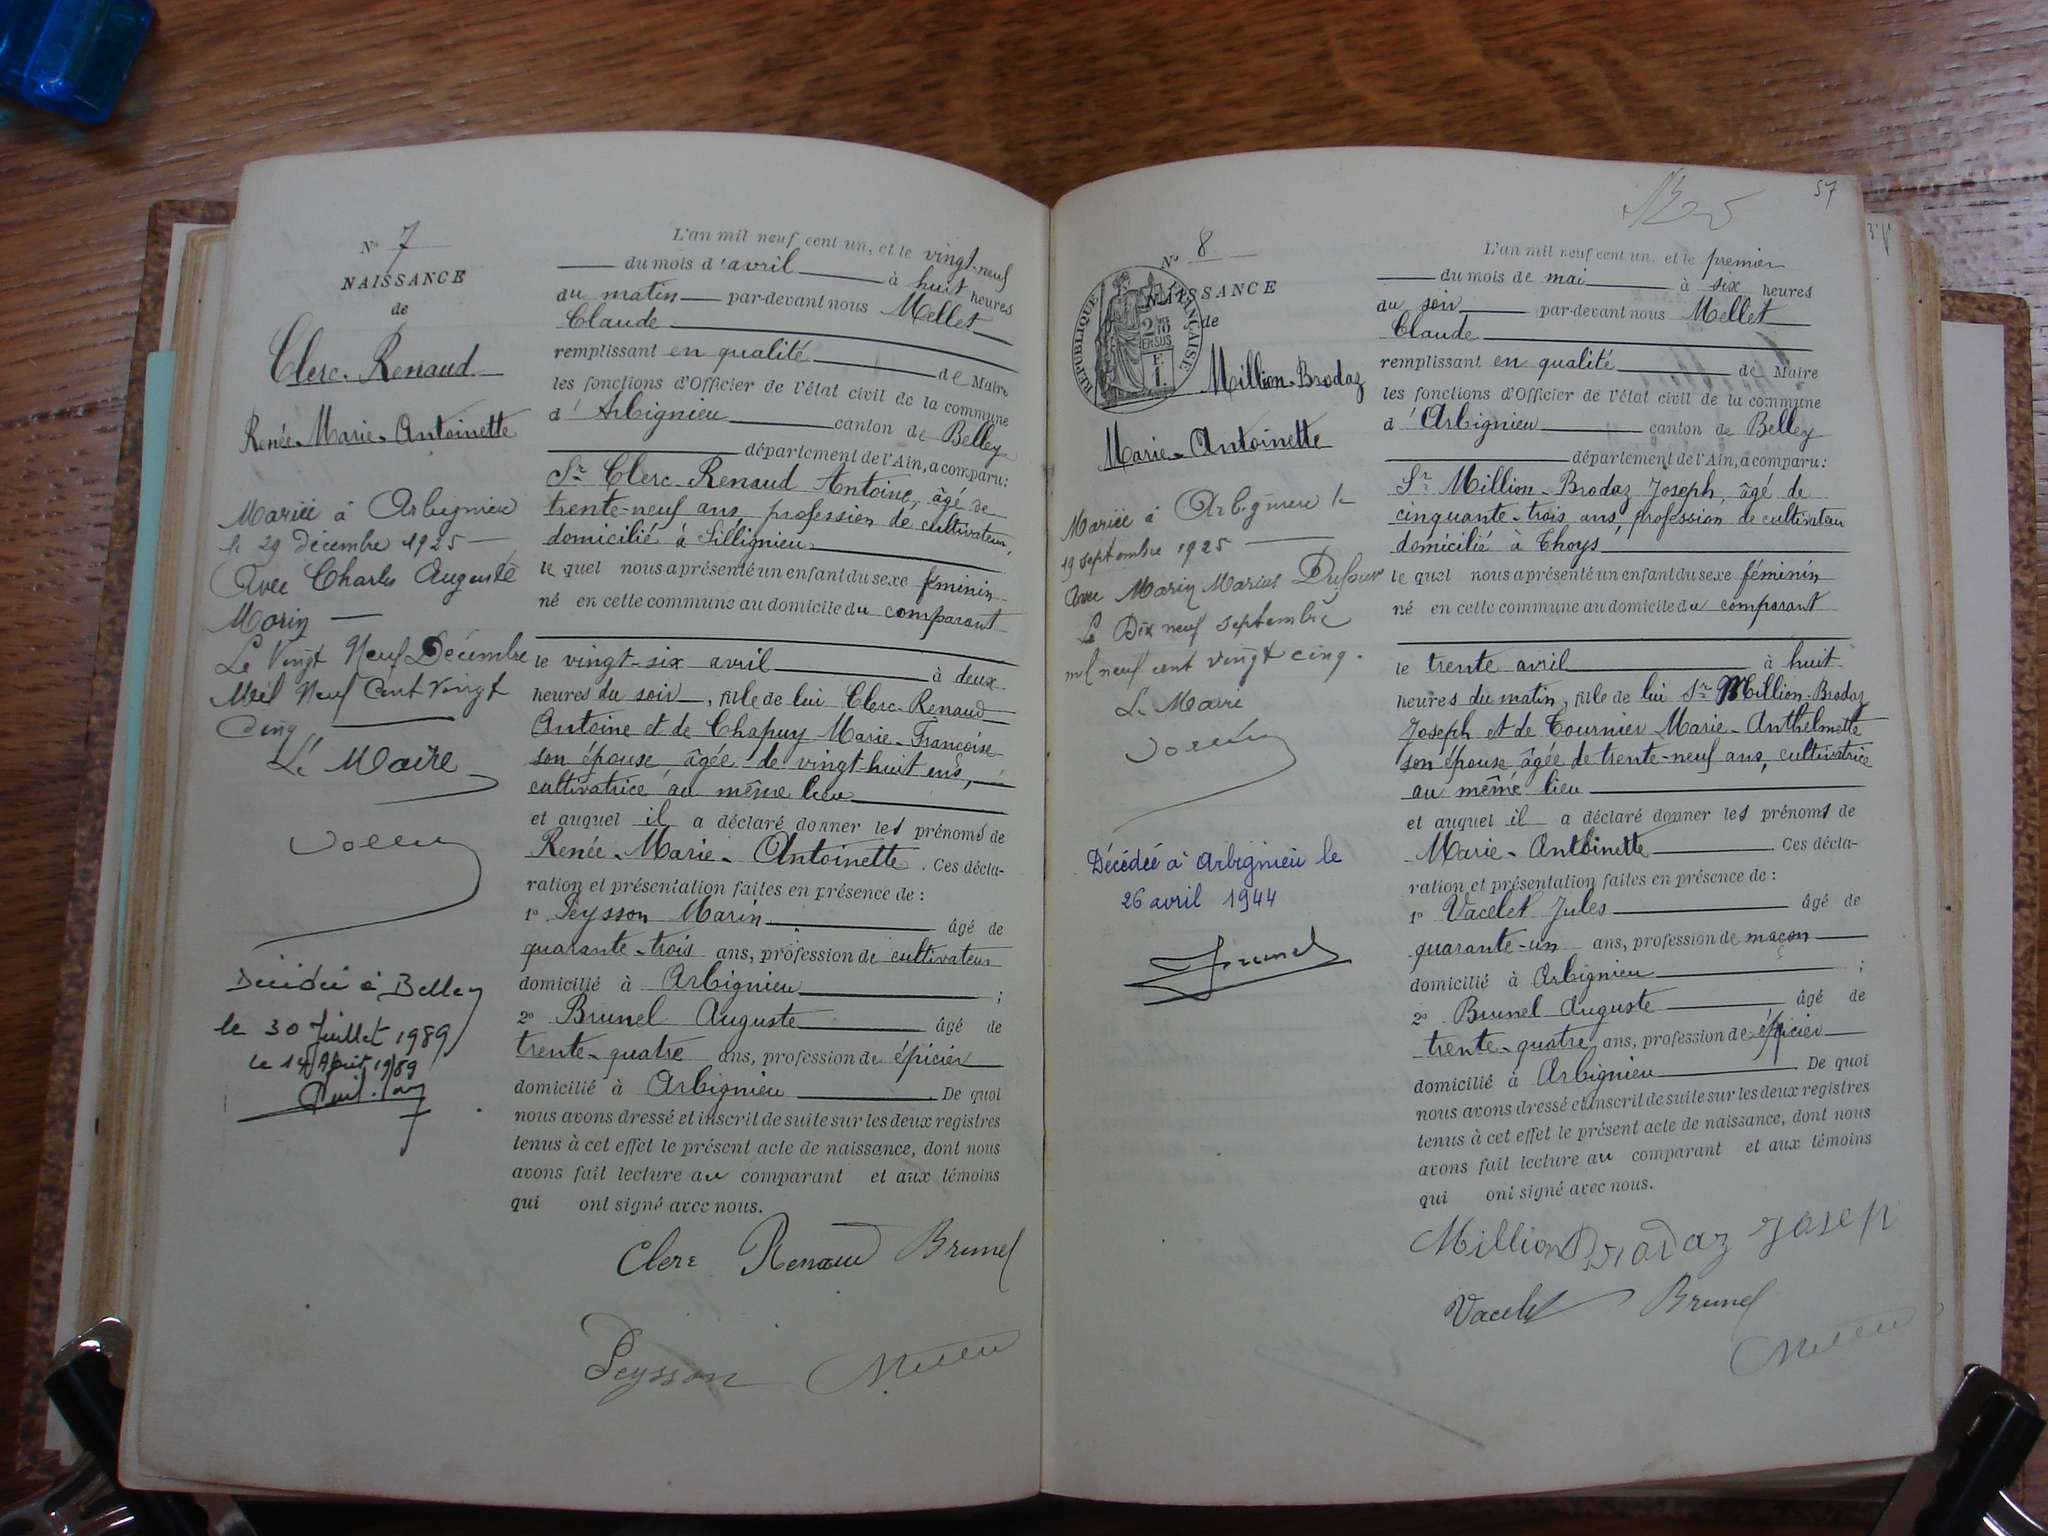 N° 7
NAISSANCE
de
Clerc-Renaud
Renée-Marie-Antoinette
Mariée à Arbignieu
le 29 décembre 1925
Avec Charles Auguste
Morin
Le Vingt Neuf Décembre
Mil Neuf Cent Vingt
Cinq
Le Maire
Décédée à Belley
le 30 Juillet 1989
le 14 Août 1989
L'an mil neuf cent un, et le vingt-neuf
du mois d'avril à huit heures
du matin par-devant nous Mellet
Claude
remplissant en qualité de Maire
les fonctions d'Officier de l'état civil de la commune
d'Arbignieu canton de Belley
département de l'Ain, a comparu:
Sr Clerc-Renaud Antoine, âgé de
trente-neuf ans, profession de cultivateur,
domicilié à Sillignieu
le quel nous a présenté un enfant du sexe féminin
né en cette commune au domicile du comparant
le vingt-six avril à deux
heures du soir, fille de lui Clerc-Renaud
Antoine et de Chapuy Marie-Françoise
son épouse âgée de vingt-huit ans,
cultivatrice au même lieu
et auquel il a déclaré donner les prénoms de
Renée-Marie-Antoinette. Ces décla-
ration et présentation faites en présence de :
1° Peysson Marin âgé de
quarante-trois ans, profession de cultivateur
domicilié à Arbignieu ;
2° Brunel Auguste âgé de
trente-quatre ans, profession de épicier
domicilié à Arbignieu. De quoi
nous avons dressé et inscrit de suite sur les deux registres
tenus à cet effet le présent acte de naissance, dont nous
avons fait lecture au comparant et aux témoins
qui ont signé avec nous.
Clerc Renaud Brunel
Peysson
57
N° 8
NAISSANCE
de
RÉPUBLIQUE FRANÇAISE
Million-Brodaz
Marie-Antoinette
Mariée à Arbignieu le
19 septembre 1925
avec Marin Marius Dufour
Le Dix neuf septembre
mil neuf cent vingt cinq.
Le Maire
Décédée à Arbignieu le
26 avril 1944
Brunel
L'an mil neuf cent un, et le premier
du mois de mai à six heures
du soir par-devant nous Mellet
Claude
remplissant en qualité de Maire
les fonctions d'Officier de l'état civil de la commune
d'Arbignieu canton de Belley
département de l'Ain, a comparu:
Sr Million-Brodaz Joseph, âgé de
cinquante-trois ans, profession de cultivateur
domicilié à Thoys
le quel nous a présenté un enfant du sexe féminin
né en cette commune au domicile du comparant
le trente avril à huit
heures du matin, fille de lui Sr Million-Brodaz
Joseph et de Tournier Marie-Anthelmette
son épouse âgée de trente-neuf ans, cultivatrice
au même lieu
et auquel il a déclaré donner les prénoms de
Marie-Antoinette. Ces décla-
ration et présentation faites en présence de :
1° Vacelet Jules âgé de
quarante-un ans, profession de maçon
domicilié à Arbignieu ;
2° Brunel Auguste âgé de
trente-quatre ans, profession de épicier
domicilié à Arbignieu. De quoi
nous avons dressé et inscrit de suite sur les deux registres
tenus à cet effet le présent acte de naissance, dont nous
avons fait lecture au comparant et aux témoins
qui ont signé avec nous.
Million Brodaz Joseph
Vacelet Brunel